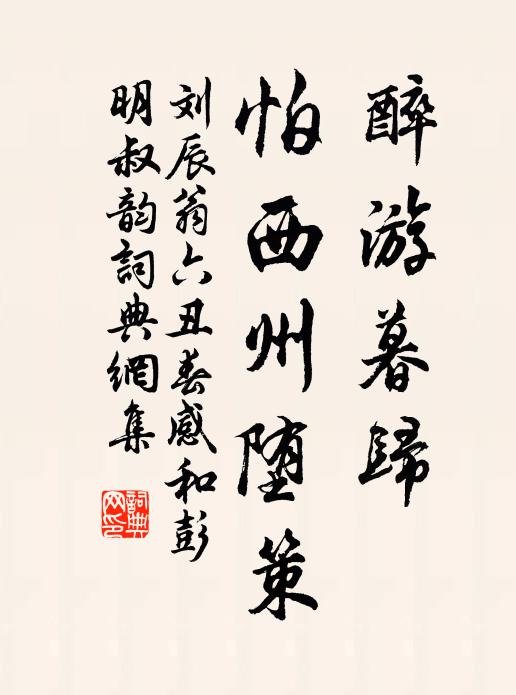 醉游暮歸
怕西州堕策
刘辰翁六丑春感和彭
明叔韵詞典網集
詞典网印